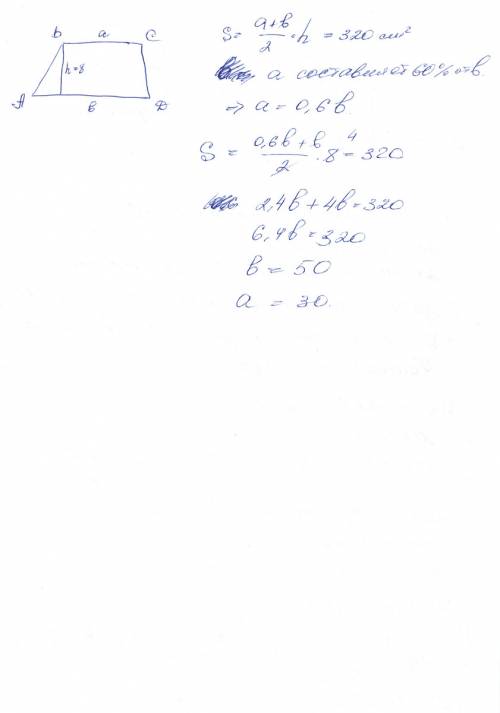 В a С
h=8
А в D
S = (a+в)/2 · h = 320 см²
а составляет 60% от в.
⇒ a = 0,6в.
S = (0,6в+в)/2 · 8 4 = 320
2,4в + 4в = 320
6,4в = 320
в = 50
a = 30.